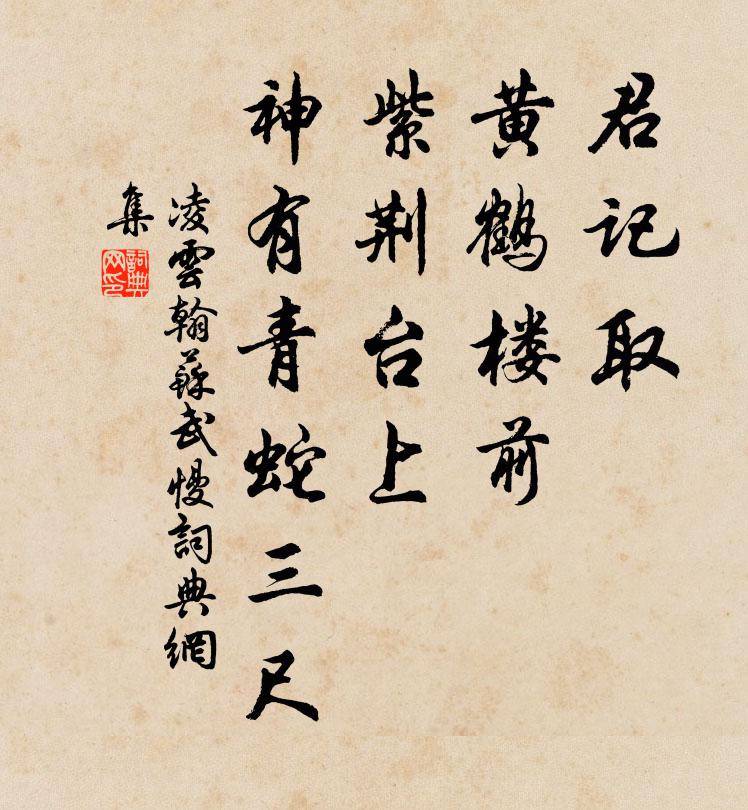 君记取
黄鹤楼前
紫荆台上
神有青蛇三尺
凌雲翰蘇武慢詞典網
集
詞典
网印